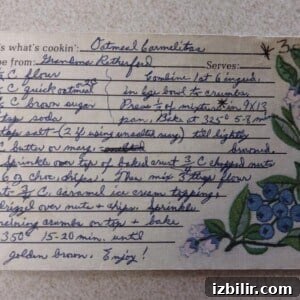 's what's cookin': Oatmeal Carmelitas
e from Grandma Rutherford Serves:
C. flour Combine 1st 6 ingred.
C. quick oatmeal in lge bowl to crumbs.
C. brown sugar Press ½ of mixture in 9X13
tsp soda pan. Bake at 325° 5-8 min
tsp salt (2 if using unsalted marg) till lightly
C butter or marg. browned.
Sprinkle over top of baked crust ¾ C chopped nuts
6 oz choc. chips. Then mix 3 tbsp flour
to ¾ C. caramel ice cream topping,
drizzle over nuts + chips. Sprinkle
remaining crumbs on top + bake
350° 15-20 min. until
golden brown. Enjoy!
izbilir.com